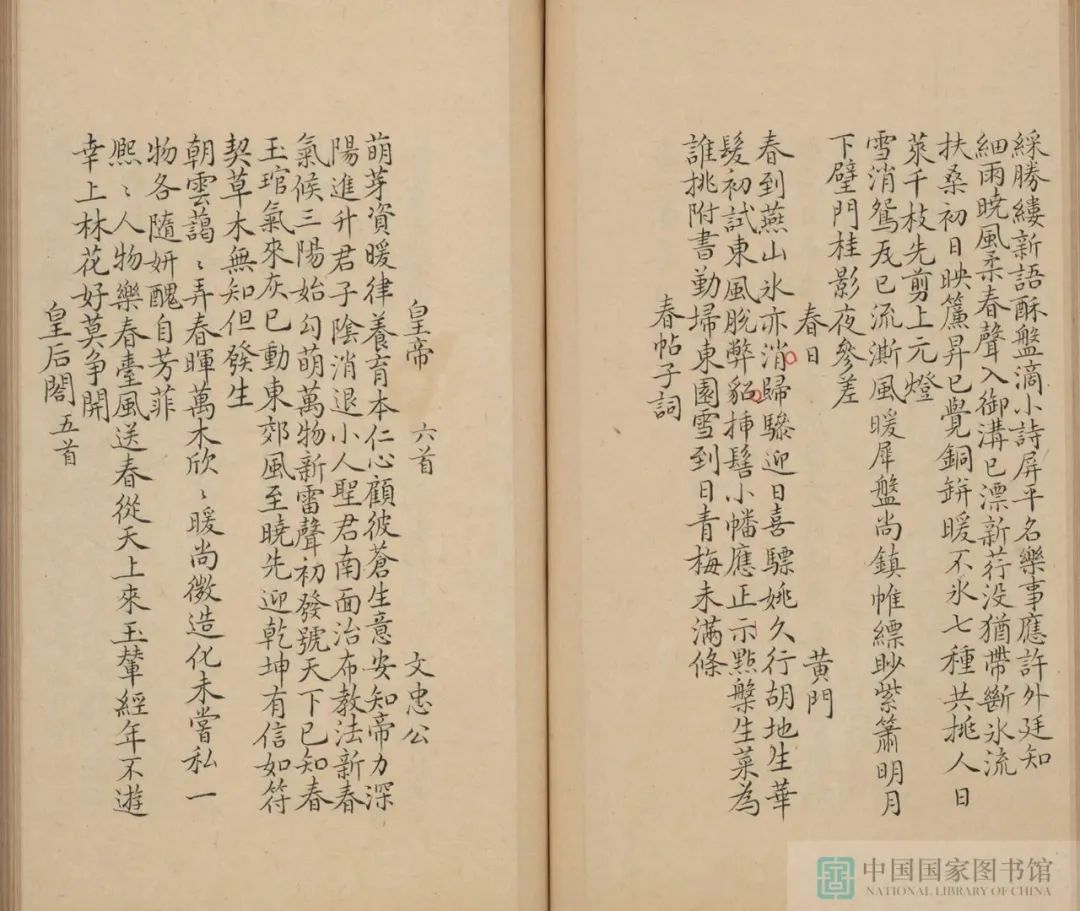 綵勝縷新語酥盤滴小詩屏平名樂事應許外廷知
細雨曉風柔春聲入御溝已漂新荇没猶帶斷氷流
扶桑初日映簾昇已覺銅鉼暖不氷七種共挑人日
菜千枝先剪上元燈
雪消鴛瓦已流澌風暖犀盤尚鎮帷縹眇紫簫明月
下壁門桂影夜參差
春日
黄門
春到燕山氷亦消歸驂迎日喜驃姚久行胡地生華
髮初試東風脫弊貂揷髻小幡應正爾點槃生菜為
誰挑附書勤埽東園雪到日青梅未滿條
春帖子詞
皇帝 六首
文忠公
萌芽資暖律養育本仁心顧彼蒼生意安知帝力深
陽進升君子陰消退小人聖君南面治布教法新春
氣候三陽始勾萌萬物新雷聲初發號天下已知春
玉琯氣來灰已動東郊風至曉先迎乾坤有信如符
契草木無知但發生
朝雲藹〻弄春暉萬木欣〻暖尚微造化未嘗私一
物各隨妍醜自芳菲
熈〻人物樂春臺風送春從天上來玉輦經年不遊
幸上林花好莫争開
皇后閤 五首
中国国家图书馆
NATIONAL LIBRARY OF CHINA